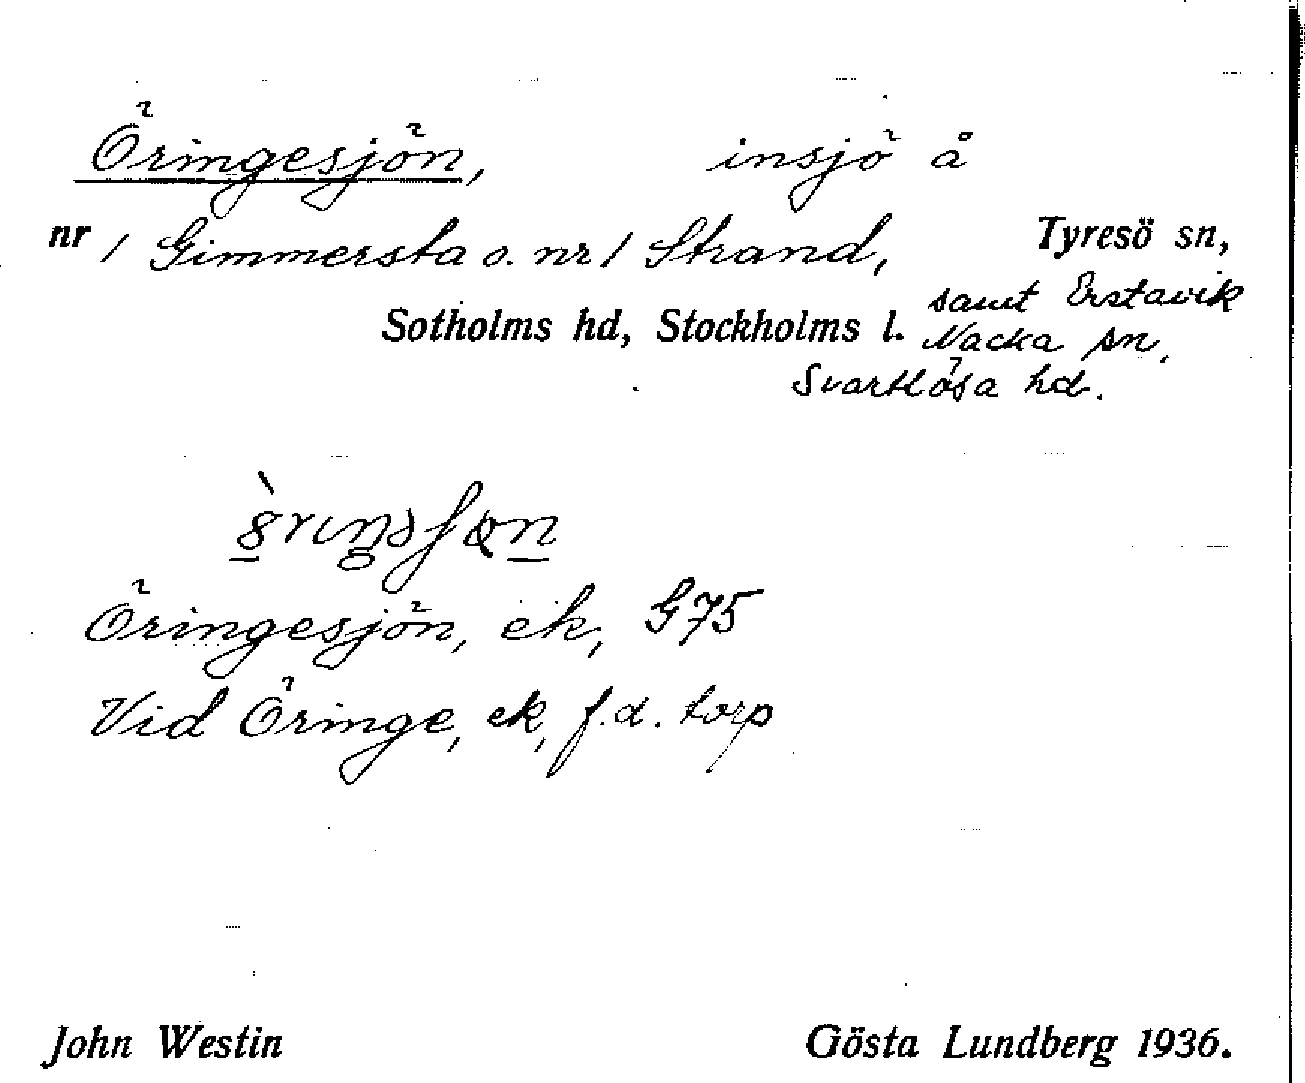 Öringesjön, insjö å
nr 1 Gimmersta o. nr 1 Strand, Tyresö sn,
Sotholms hd, Stockholms l. samt Erstavik
Nacka sn,
Svartlösa hd.
Öringesjön, ek, G75
Vid Öringe, ek, f.d. torp
John Westin Gösta Lundberg 1936.